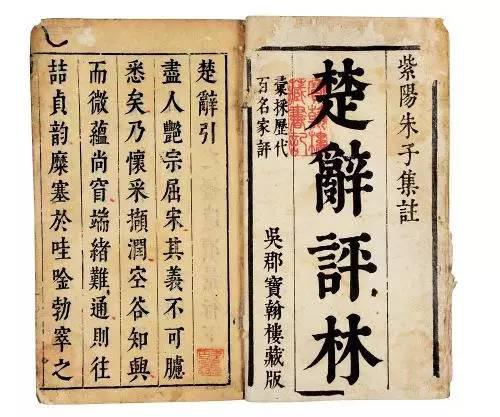 紫陽朱子集註
楚辭評林
彙採歷代
百名家評
吳郡寶翰樓藏版
楚辭引
盡人艷宗屈宋其義不可臆
悉矣乃懷采擷潤空谷知興
而微蘊尚窅端緒難通則往
喆貞韵糜塞於哇唫勃窣之